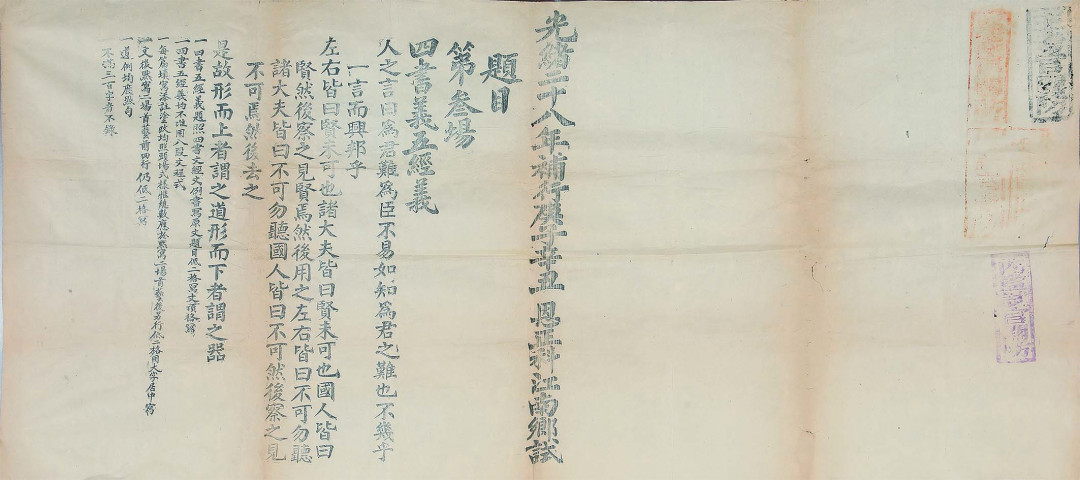 光緒二十八年補行庚子辛丑恩正科江南鄉試
題目
第叁場
四書義五經義
人之言曰為君難為臣不易如知為君之難也不幾乎
一言而興邦乎
左右皆曰賢未可也諸大夫皆曰賢未可也國人皆曰
賢然後察之見賢焉然後用之左右皆曰不可勿聽
諸大夫皆曰不可勿聽國人皆曰不可然後察之見
不可焉然後去之
是故形而上者謂之道形而下者謂之器
一四書五經義題照四書文經文例書寫原文題目低二格寫文頂格寫
一四書五經義均不准用八股文程式
一每篇填寫添註塗改均照頭場式樣惟總數應於默寫二場首藝後另行低二格用大字居中寫
一文後默寫二場首藝前四行仍低二格寫
一違例均應貼句
一不滿三百字者不錄